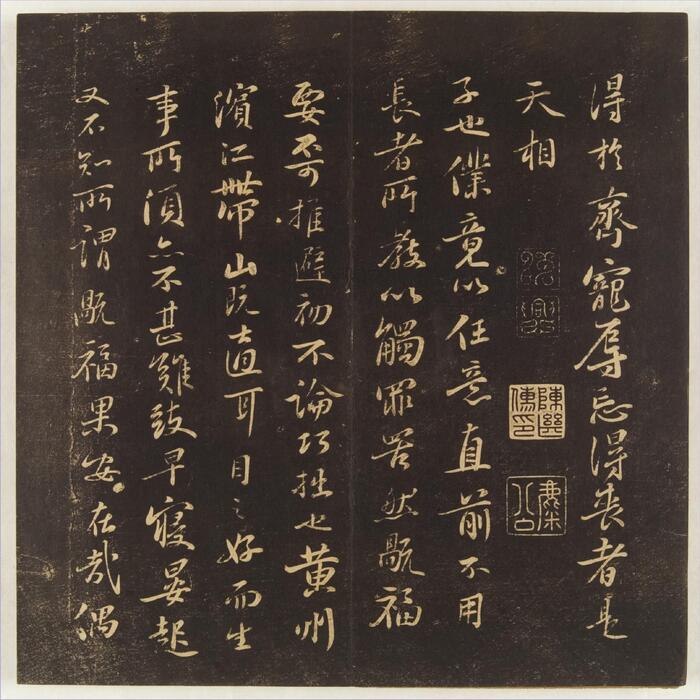 得於齊寵辱忘得喪者是
天相
陳繼儒印
子也僕竟以任意直前不用
長者所教以觸罪罟然禍福
要不可推避初不論巧拙也黃州
濱江帶山既適耳目之好而生
事所須亦不甚難致早寢晏起
又不知所謂禍福果安在哉偶